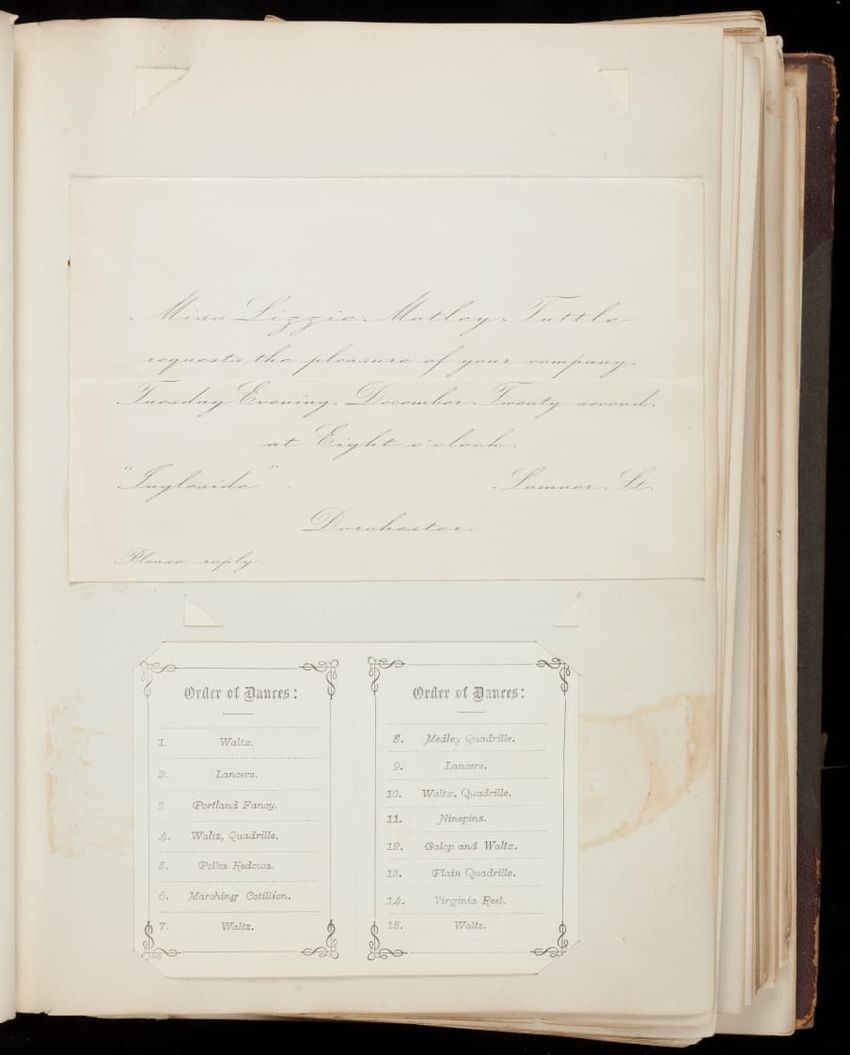 Miss Lizzie Motley Tuttle
requests the pleasure of your company,
Tuesday Evening, December Twenty second.
at Eight o'clock.
"Ingleside". Sumner St.
Dorchester.
Please reply.
Order of Dances:
1. Waltz.
2. Lancers.
3. Portland Fancy.
4. Waltz, Quadrille.
5. Polka Redowa.
6. Marching Cotillion.
7. Waltz.
Order of Dances:
8. Medley Quadrille.
9. Lancers.
10. Waltz, Quadrille.
11. Ninepins.
12. Galop and Waltz.
13. Plain Quadrille.
14. Virginia Reel.
15. Waltz.